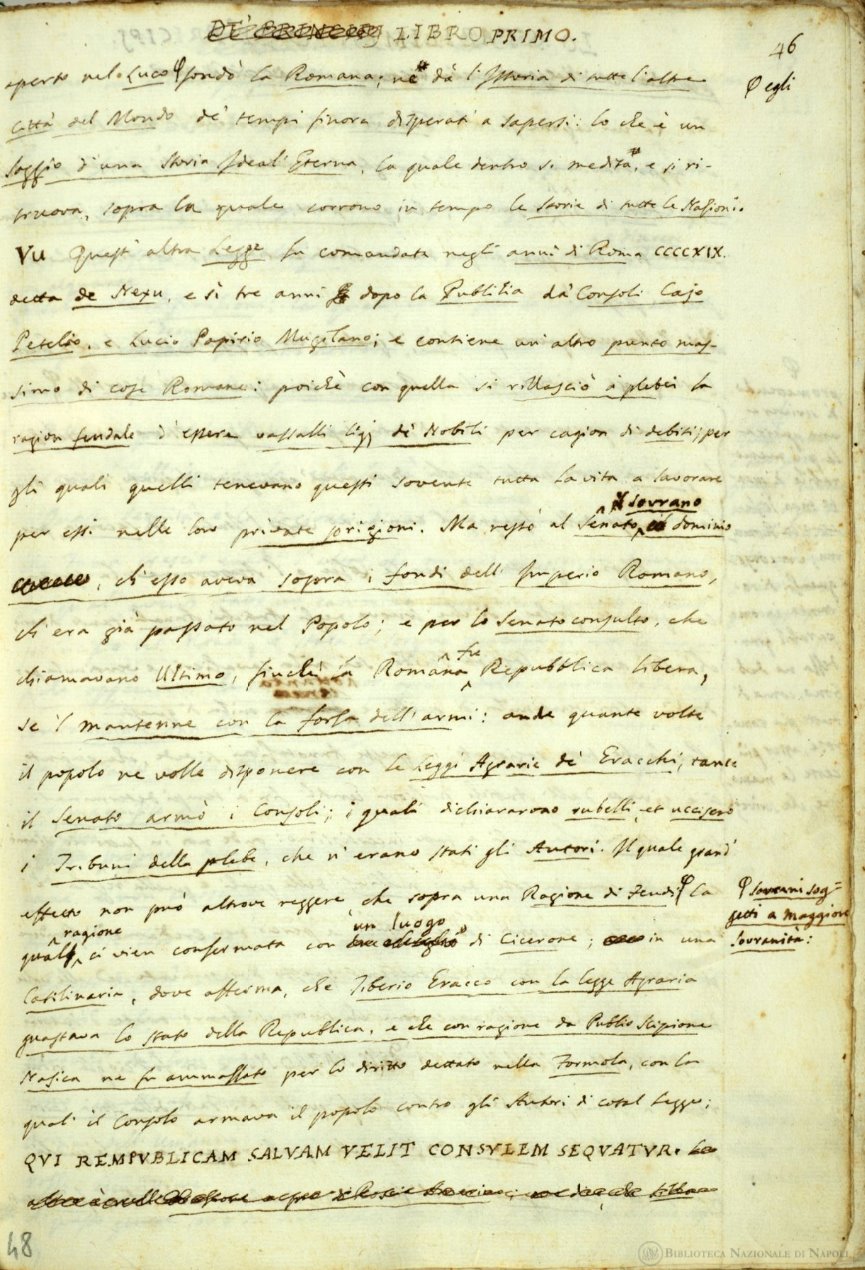 LIBRO PRIMO.
46
aperto nel Luco φ fondò la Romana; nè dà l'Istoria di tutte l'altre
φ egli
Città del Mondo de' tempi finora disperati a sapersi: lo che è un
Saggio d'una Storia Ideal' Eterna, la quale dentro si medita, e si ri-
truova, sopra la quale corrono in tempo le Storie di tutte le Nazioni.
VII Quest' altra Legge fu comandata negli anni di Roma CCCCXIX.
detta de Nexu, e sì tre anni dopo la Publilia da' Consoli Cajo
Petelio, e Lucio Papirio Mugilano; e contiene un' altro punto mas-
simo di cose Romane: poichè con quella si rillasciò a' plebei la
ragion feudale d'essere vassalli ligj de' Nobili per cagion di debiti; per
gli quali quelli tenevano questi sovente tutta la vita a lavorare
il sovrano
per essi nelle loro private prigioni. Ma restò al Senato dominio
, ch' esso aveva sopra i fondi dell' Imperio Romano,
ch' era già passato nel Popolo; e per lo Senatoconsulto, che
chiamavano Ultimo, finchè la Romana fu Repubblica libera,
se 'l mantenne con la forza dell' armi: onde quante volte
il popolo ne volle disponere con le Leggi Agrarie de' Gracchi, tante
il Senato armò i Consoli; i quali dichiararono rubelli, et uccisero
i Tribuni della plebe, che n' erano stati gli Autori. Il quale grand'
effetto non può altrove reggere, che sopra una Ragione di Feudi φ La
φ sovrani sog-
getti a maggiore
sovranità:
ragione
un luogo
qual ci vien confermata con di Cicerone; in una
Catilinaria, dove afferma, che Tiberio Gracco con la legge Agraria
guastava lo stato della Republica, e che con ragione da Publio Scipione
Nasica ne fu ammazzato per lo diritto dettato nella Formola, con la
quale il Consolo armava il popolo contro gli Autori di cotal Legge;
QVI REMPVBLICAM SALVAM VELIT CONSVLEM SEQVATVR.
48
BIBLIOTECA NAZIONALE DI NAPOLI